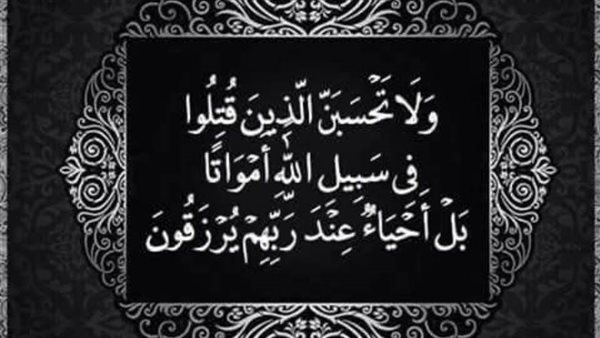 وَلَا تَحْسَبَنَّ الَّذِينَ قُتِلُوا
فِي سَبِيلِ اللَّهِ أَمْوَاتًا
بَلْ أَحْيَاءٌ عِنْدَ رَبِّهِمْ يُرْزَقُونَ